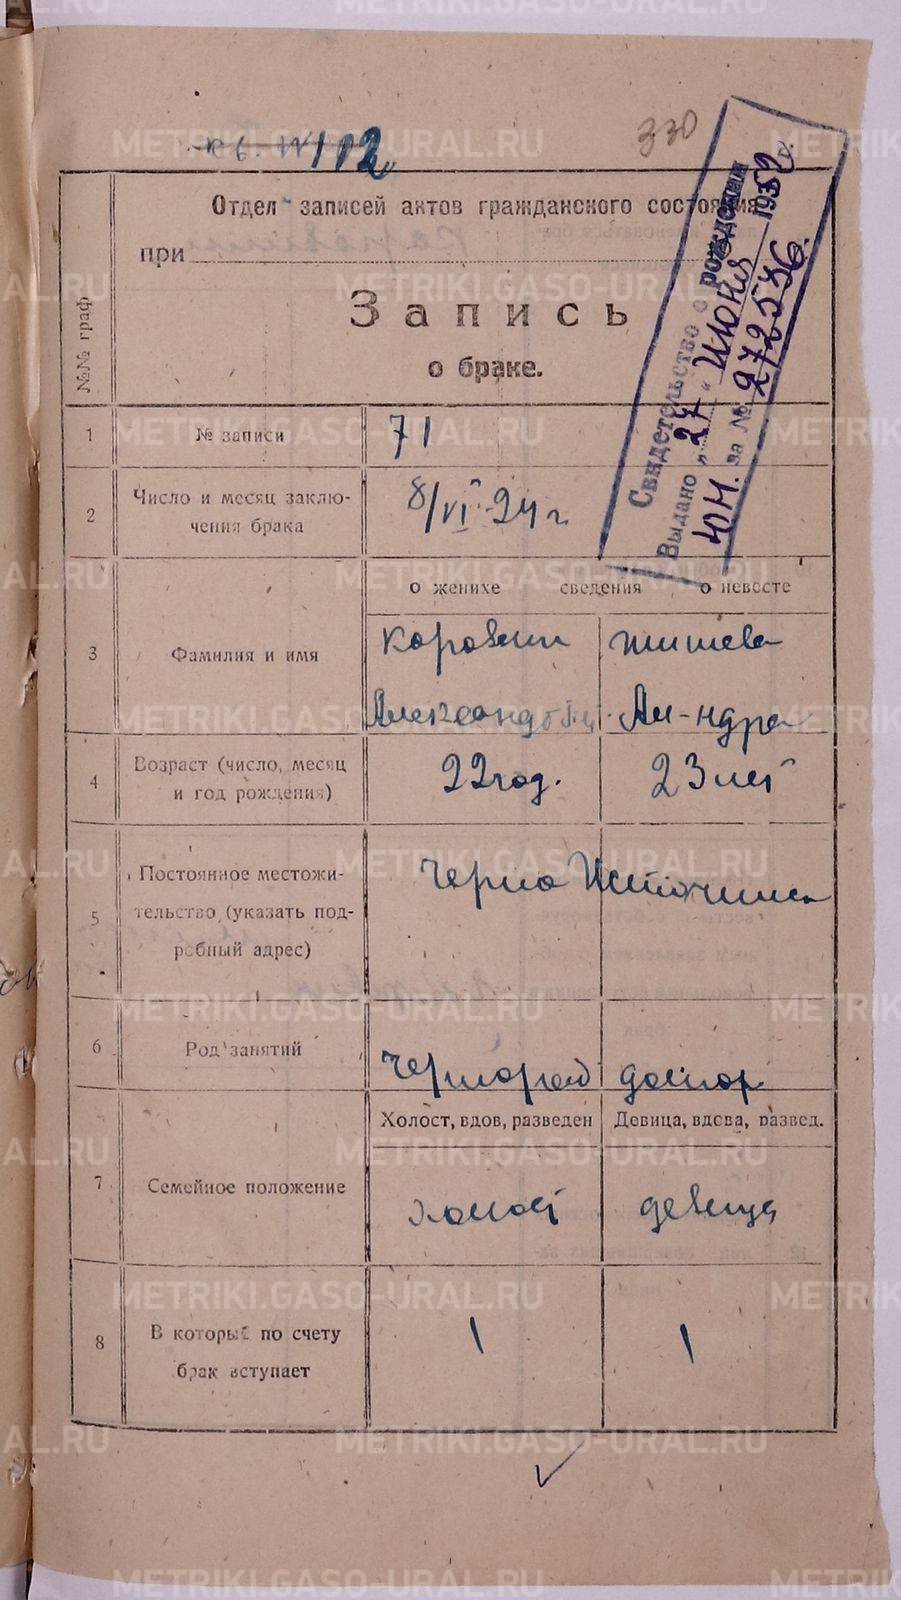 330
112
Отдел записей актов гражданского состояния
при
Запись
о браке.
Свидетельство о рождении
Выдано „27" июня 1952 г.
ЮН. за № 272586.
№№ граф
1 № записи 71
2 Число и месяц заклю-
чения брака
8/VI-24 г
о женихе сведения о невесте
3 Фамилия и имя
Коровин
Александр
Ал-ндра
4 Возраст (число, месяц
и год рождения)
22 год. 23 лет
5 Постоянное местожи-
тельство (указать под-
робный адрес)
Черно Источинск
6 Род занятий
Чернораб домхоз
Холост, вдов, разведен Девица, вдова, развед.
7 Семейное положение
холост девица
8 В который по счету
брак вступает
1 1
METRIKI.GASO-URAL.RU